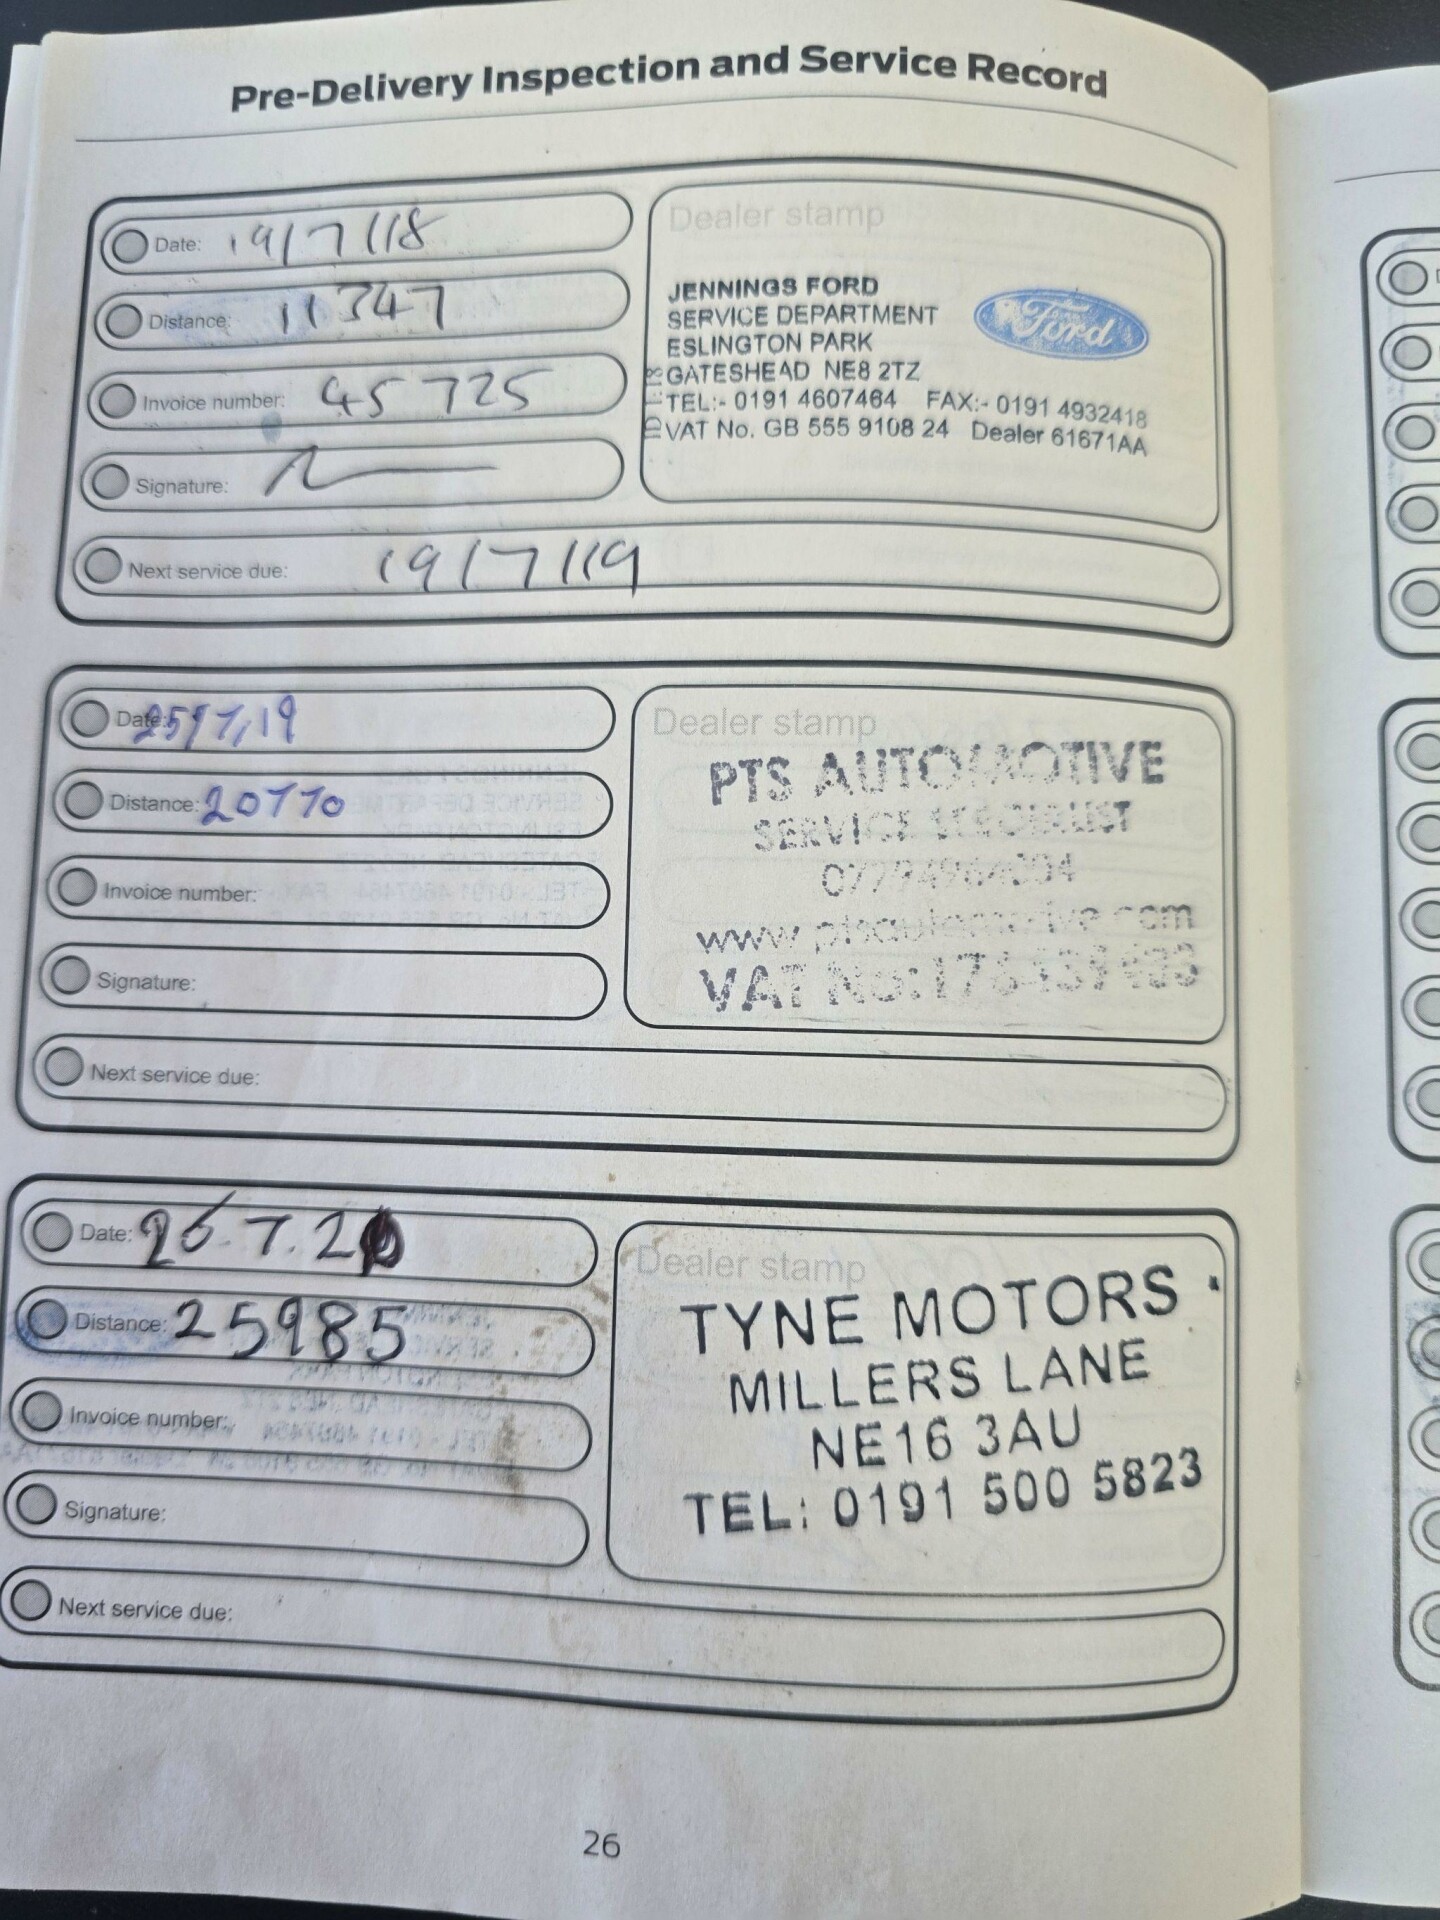 Pre-Delivery Inspection and Service Record
Date: 19/7/18
Distance: 11347
Invoice number: 45725
Signature:
Next service due: 19/7/19
Dealer stamp
JENNINGS FORD
SERVICE DEPARTMENT
ESLINGTON PARK
GATESHEAD NE8 2TZ
TEL:- 0191 4607464 FAX:- 0191 4932418
VAT No. GB 555 9108 24 Dealer 61671AA
Ford
Date: 25/7/19
Distance: 20770
Invoice number:
Signature:
Next service due:
Dealer stamp
PTS AUTOMOTIVE
SERVICE SPECIALIST
www.ptsautomotive.com
VAT No:
Date: 26.7.20
Distance: 25985
Invoice number:
Signature:
Next service due:
Dealer stamp
TYNE MOTORS
MILLERS LANE
NE16 3AU
TEL: 0191 500 5823
26